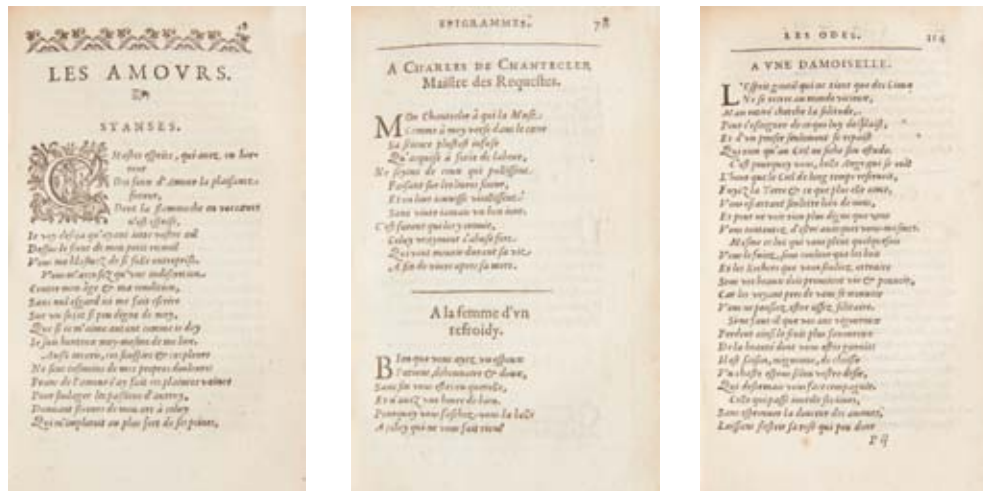 LES AMOVRS.
STANSES.
Chastes esprits, qui auez en hor-
reur
Du feint d'Amour la plaisante
fureur,
Dont la flammeche en vos cœurs
n'est esprise,
Ie voy desja qu'ayant jetté vostre œil
Dessus le front de mon petit recueil
Vous me blasmez de si folle entreprise.
Vous m'accusez qu'vne indiscretion
Contre mon âge & ma condition,
Sans nul esgard ait me fait escrire
Sur vn sujet si peu digne de moy,
Que si ie m'aime autant comme ie doy
Ie suis honteux moy-mesme de me lire.
Aussi ces souspirs & ces pleurs
Ne sont de mes propres douleurs
Franc de l'amour i'ay fait ces plaintes vaines
Pour soulager les passions d'autruy,
Donnant secours de mon art à celuy
Qui m'imploroit au plus fort de ses peines,
EPIGRAMMES. 78
A CHARLES DE CHANTECLER
Maistre des Requestes.
MOn Chantecler à qui la Muse
Comme à moy verse dans le cœur
Sa science plustost infuse
Qu'acquise à force de labeur,
Ne soyons de ceux qui pallissent
Passant sur les liures
Et en leur vieillissent
Sans viure iamais vn bon iour.
C'est fureur qui les y conuie,
Celuy vrayment s'abuse fort
Qui veut mourir durant sa vie
A fin de viure apres sa mort.
A la femme d'vn
refroidy.
BIen que vous ayez vn espoux
Patient, debonnaire & doux,
Sans fin vous estes en querelle,
Et n'auez vne heure de bien.
Pourquoy vous faschez-vous la belle
A celuy qui ne vous fait rien?
LES ODES. 114
A VNE DAMOISELLE.
L'Esprit gentil qui ne tient que des Cieux
Ne se voyant au monde vicieux,
cherche la solitude,
Pour s'esloigner de ce qui luy desplaist,
Et d'vn penser seulement se repaist
Qui vers le Ciel fiche son estude.
C'est pourquoy vous, belle Ange qui se voit
L'heur que le Ciel de long temps reseruoit,
Fuyez la Terre & ce que plus elle aime,
Vous escartant seulette loin de nous,
Et pour ne voir rien plus digne que vous
Vous contentez d'estre auecques vous-mesmes.
Mesme ce lieu qui vous plaist quelquesfois
Vous le fuiez, sous couleur que les bois
Et les Rochers que vous souliez attraire
Sous vos beaux doits prennent vie & pouuoir,
Car les voyant pres de vous se mouuoir
Vous ne pensiez estre assez solitaire.
Si ne faut il que vos ans vigoureux
Perdent ainsi le fruit plus sauoureux
De la beauté dont vous estes garnie:
Il est saison, mignonne, de choisir
Vn chaste espoux selon vostre desir,
Qui desormais vous face compagnie.
Celle qui passe inutile ses iours,
Sans esprouuer la douceur des amours,
Laissant flestrir sa rose qui peu dure
P ij